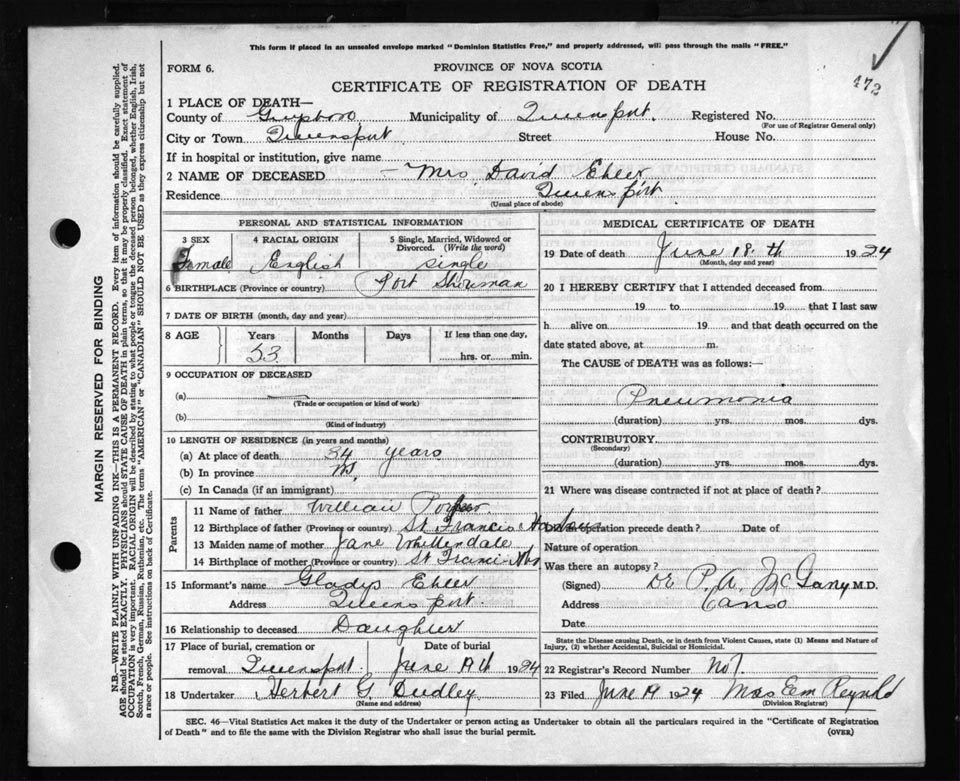 This form if placed in an unsealed envelope marked "Dominion Statistics Free," and properly addressed, will pass through the mails "FREE."
472
FORM 6.
PROVINCE OF NOVA SCOTIA
CERTIFICATE OF REGISTRATION OF DEATH
1 PLACE OF DEATH—
County of Guysboro Municipality of Queensport. Registered No.
(For use of Registrar General only)
City or Town Queensport Street House No.
If in hospital or institution, give name
2 NAME OF DECEASED — Mrs David Ehler
Residence Queensport
(Usual place of abode)
PERSONAL AND STATISTICAL INFORMATION
3 SEX Female
4 RACIAL ORIGIN English
5 Single, Married, Widowed or Divorced. (Write the word) single
6 BIRTHPLACE (Province or country) Port Shoreman
7 DATE OF BIRTH (month, day and year)
8 AGE Years 53 Months Days If less than one day, hrs. or min.
9 OCCUPATION OF DECEASED
(a)
(Trade or occupation or kind of work)
(b)
(Kind of industry)
10 LENGTH OF RESIDENCE (in years and months)
(a) At place of death 34 years
(b) In province
(c) In Canada (if an immigrant)
Parents
11 Name of father William
12 Birthplace of father (Province or country) St Francis Harbour
13 Maiden name of mother Jane Whittendale
14 Birthplace of mother (Province or country) St Francis Hbr
15 Informant's name Gladys Ehler
Address Queensport.
16 Relationship to deceased Daughter
17 Place of burial, cremation or removal Queensport. Date of burial June 19th 1924
18 Undertaker Herbert G Dudley
(Name and address)
MEDICAL CERTIFICATE OF DEATH
19 Date of death June 18th 1924
(Month, day and year)
20 I HEREBY CERTIFY that I attended deceased from
19 to 19 that I last saw
h alive on 19 and that death occurred on the
date stated above, at m.
The CAUSE of DEATH was as follows:—
Pneumonia
(duration) yrs. mos. dys.
CONTRIBUTORY
(Secondary)
(duration) yrs. mos. dys.
21 Where was disease contracted if not at place of death?
operation precede death? Date of
Nature of operation
Was there an autopsy?
(Signed) Dr P. A. McGarry M.D.
Address Canso
Date
State the Disease causing Death, or in death from Violent Causes, state (1) Means and Nature of Injury, (2) whether Accidental, Suicidal or Homicidal.
22 Registrar's Record Number No 7
23 Filed June 19 1924 Mrs Em Reynolds
(Division Registrar)
SEC. 46—Vital Statistics Act makes it the duty of the Undertaker or person acting as Undertaker to obtain all the particulars required in the "Certificate of Registration
of Death" and to file the same with the Division Registrar who shall issue the burial permit.
(OVER)
MARGIN RESERVED FOR BINDING
N.B.—WRITE PLAINLY WITH UNFADING INK—THIS IS A PERMANENT RECORD. Every item of information should be carefully supplied.
AGE should be stated EXACTLY. PHYSICIANS should STATE CAUSE OF DEATH in plain terms, so that it may be properly classified. Exact statement of
OCCUPATION is very important. RACIAL ORIGIN will be described by stating to what people or tongue the deceased person belonged, whether English, Irish,
Scotch, French, German, Russian, Ruthenian, etc. The terms "AMERICAN" or "CANADIAN" SHOULD NOT BE USED as they express citizenship but not
a race or people. See instructions on back of Certificate.